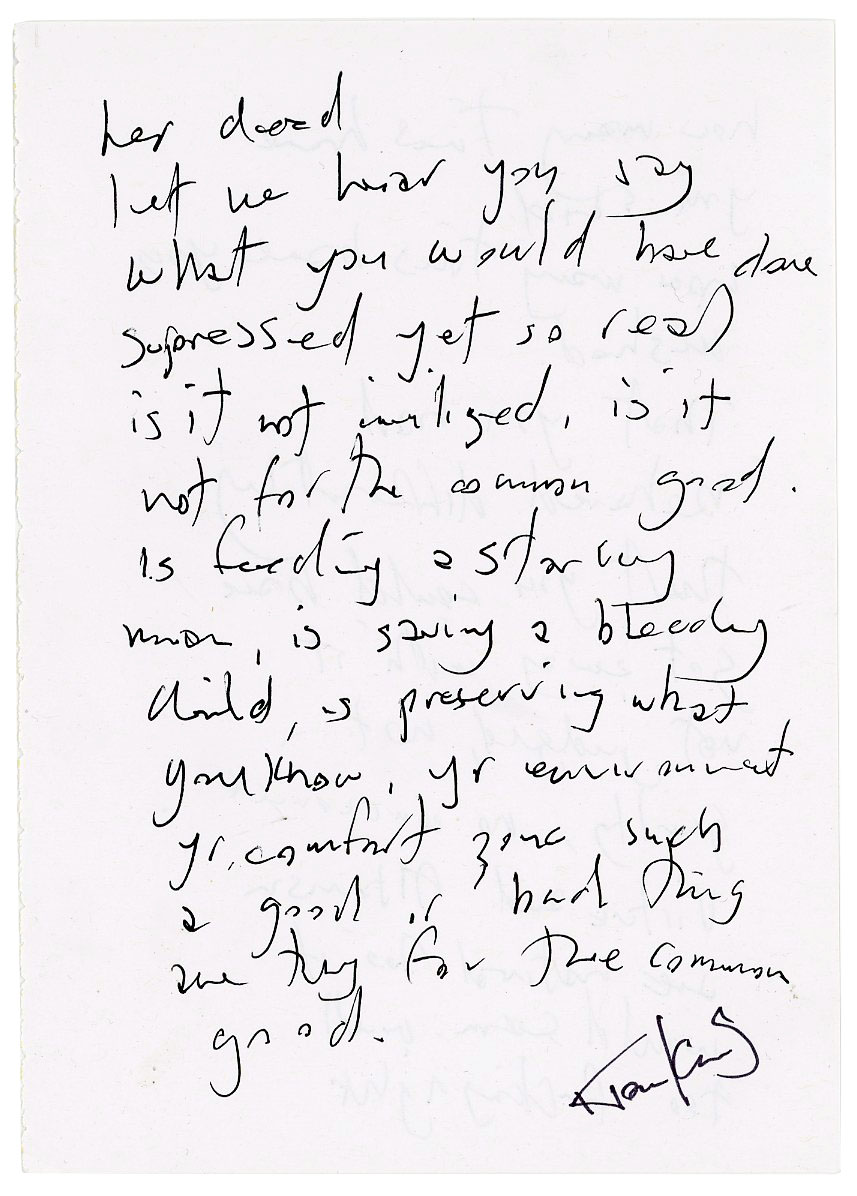 her dead
let me hear you say
what you would have done
supressed yet so real
is it not , is it
not for the common good.
is feeding a starving
man, is saving a bleeding
child, is preserving what
you know, yr environment
yr, comfort zone such
a good or bad thing
are they for the common
good.